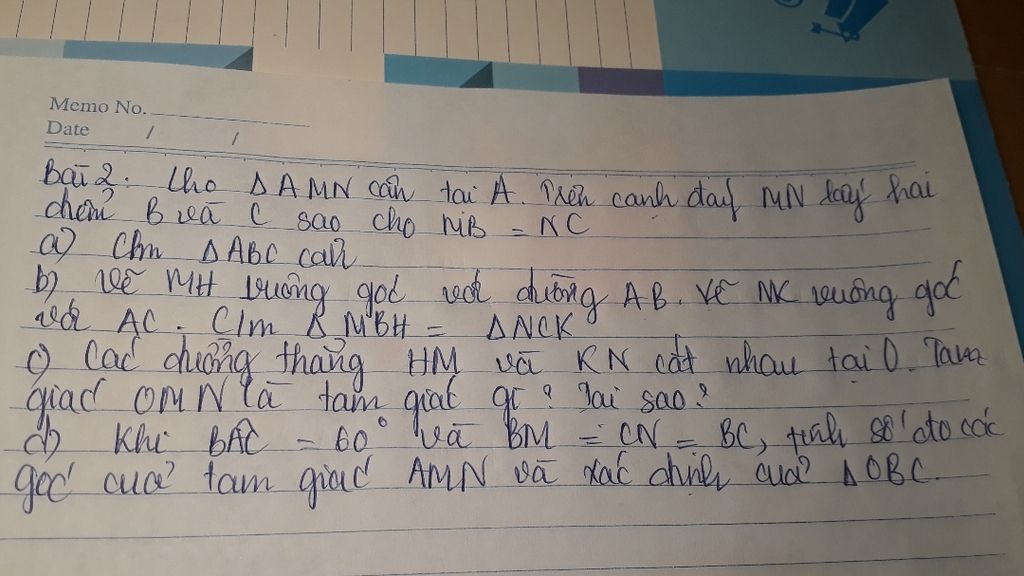 Memo No.
Date / /
Bài 2. Cho ΔAMN cân tại A. Trên cạnh đáy MN lấy hai
điểm B và C sao cho MB = NC
a) C/m ΔABC cân
b) Vẽ MH vuông góc với đường AB. Vẽ NK vuông góc
với AC. C/m ΔMBH = ΔNCK
c) Các đường thẳng HM và KN cắt nhau tại O. Tam
giác OMN là tam giác gì? Tại sao?
d) Khi BAC = 60° và BM = CN = BC, tính số đo các
góc của tam giác AMN và xác định của ΔOBC.